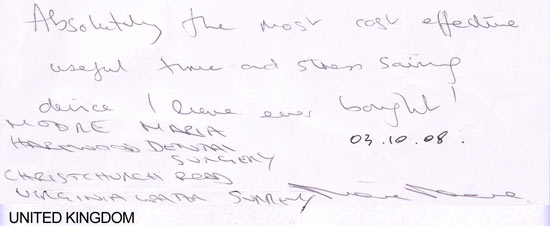 Absolutely the most cost effective
useful time and stress saving
device I have ever bought!
MOORE MARIA
03.10.08.
HAREWOOD DENTAL
SURGERY
CHRISTCHURCH ROAD
VIRGINIA WATER SURREY
UNITED KINGDOM